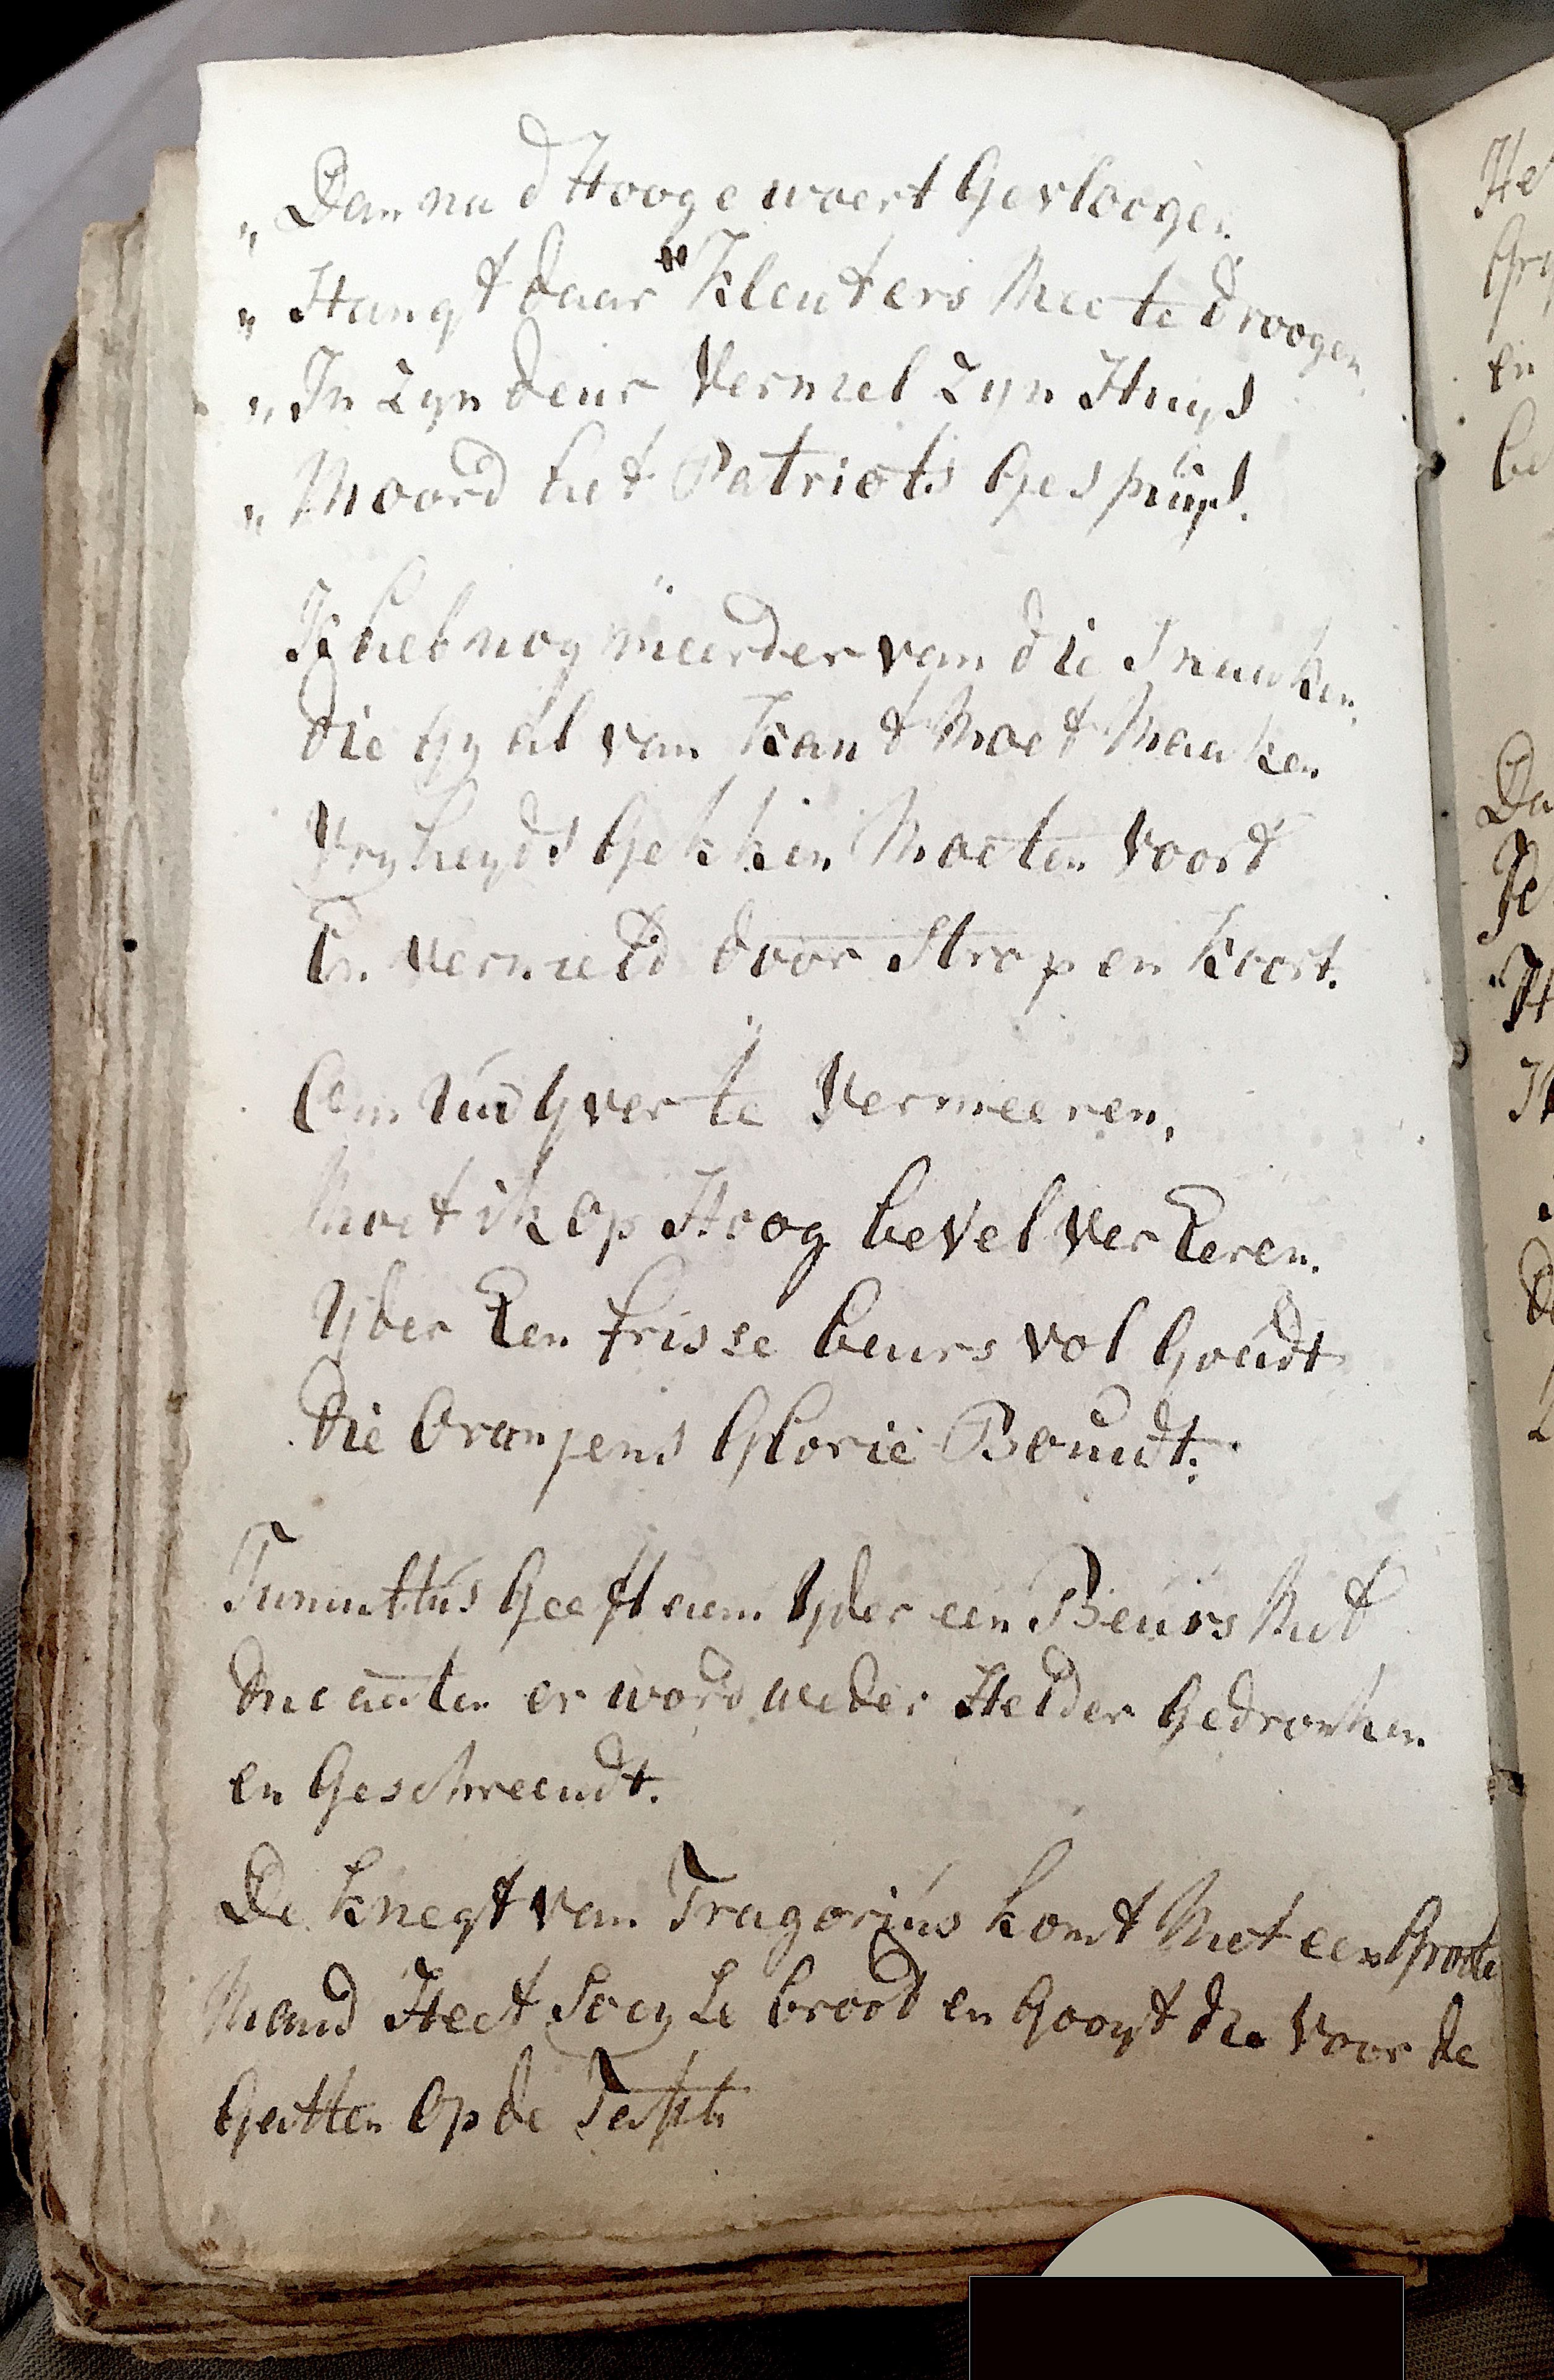 „ Dan na d Hooge woert Gevloogen
„ Hangt daar Kleuters Mee te droogen
„ In Zyn deur Verniel Zyn Huys
„ Moord het Patriots Gespuys.
Ik heb nog meerder van die Snaaken,
die Gy al van Kant Moet Maaken
Vryheyds Gekken Moeten Voort
En Vernield door Strop en Koort.
Om Uúd Yver te Vermeeren,
Moet ik Op Hoog bevel Ver Eeren.
Yder Een frisse beurs vol Goúdt
die Oranjens Glorie Boúudt.
Tumultús Geeft aan Yder een Beúrs Met
ducaaten er word weder Helder Gedronken
en Geschreeudt.
De Knegt van Tragoriús Komt Met een Groote
Mand Heet brood en Gooyt die Voor de
Gasten Op de Tafel
He
Gry
en
be
Da
Je
„H